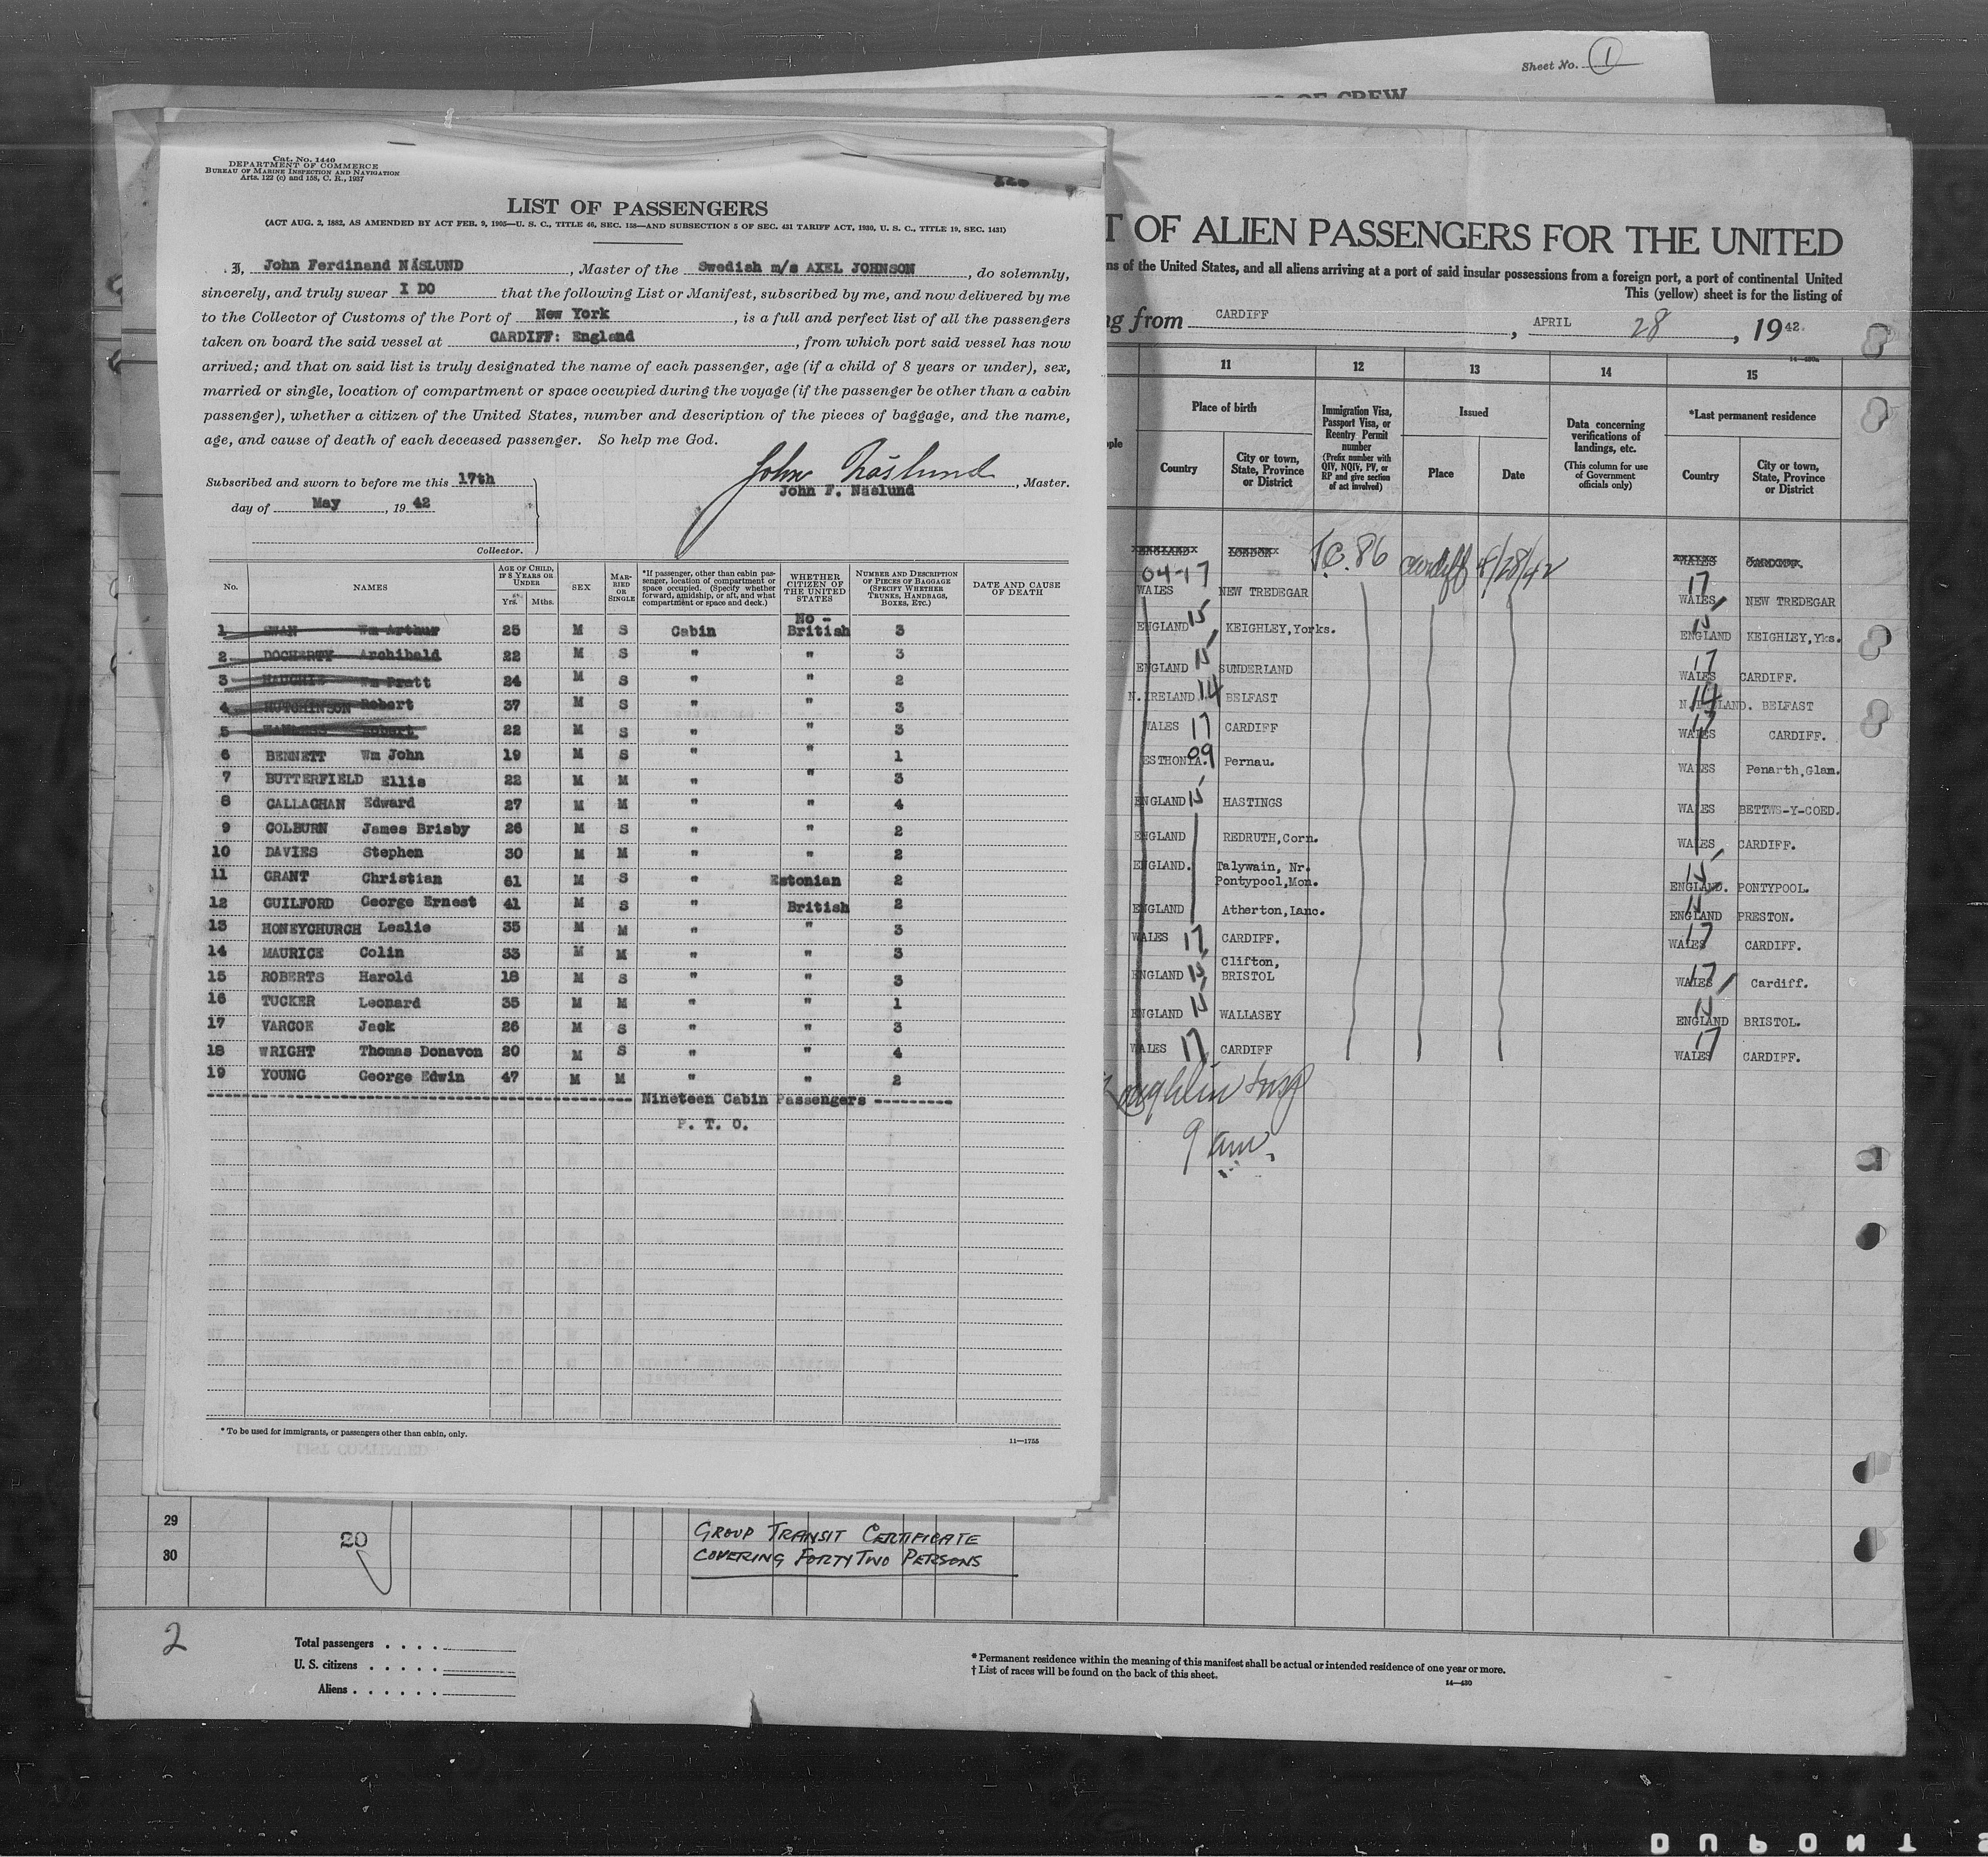 Sheet No. 1
OF CREW
Cat. No. 1440
DEPARTMENT OF COMMERCE
BUREAU OF MARINE INSPECTION AND NAVIGATION
Arts. 122 (c) and 158, C. R., 1937
LIST OF PASSENGERS
(ACT AUG. 2, 1882, AS AMENDED BY ACT FEB. 9, 1905—U. S. C., TITLE 46, SEC. 158—AND SUBSECTION 5 OF SEC. 431 TARIFF ACT, 1930, U. S. C., TITLE 19, SEC. 1431)
I, John Ferdinand NÄSLUND, Master of the Swedish m/s AXEL JOHNSON, do solemnly,
sincerely, and truly swear I DO that the following List or Manifest, subscribed by me, and now delivered by me
to the Collector of Customs of the Port of New York, is a full and perfect list of all the passengers
taken on board the said vessel at CARDIFF: England, from which port said vessel has now
arrived; and that on said list is truly designated the name of each passenger, age (if a child of 8 years or under), sex,
married or single, location of compartment or space occupied during the voyage (if the passenger be other than a cabin
passenger), whether a citizen of the United States, number and description of the pieces of baggage, and the name,
age, and cause of death of each deceased passenger. So help me God.
John Näslund
John F. Näslund, Master.
Subscribed and sworn to before me this 17th
day of May, 19 42
Collector.
No. NAMES AGE OF CHILD, IF 8 YEARS OR UNDER Yrs. Mths. SEX MARRIED OR SINGLE *If passenger, other than cabin passenger, location of compartment or space occupied. (Specify whether forward, amidship, or aft, and what compartment or space and deck.) WHETHER CITIZEN OF THE UNITED STATES NUMBER AND DESCRIPTION OF PIECES OF BAGGAGE (SPECIFY WHETHER TRUNKS, HANDBAGS, BOXES, ETC.) DATE AND CAUSE OF DEATH
No -
1 SWAN Wm Arthur 25 M S Cabin British 3
2 DOCHERTY Archibald 22 M S " " 3
3 Wm Pratt 24 M S " " 2
4 HUTCHINSON Robert 37 M S " " 3
5 Robert 22 M S " " 3
6 BENNETT Wm John 19 M S " " 1
7 BUTTERFIELD Ellis 22 M M " " 3
8 CALLAGHAN Edward 27 M M " " 4
9 COLBURN James Brisby 26 M S " " 2
10 DAVIES Stephen 30 M M " " 2
11 GRANT Christian 61 M S " Estonian 2
12 GUILFORD George Ernest 41 M S " British 2
13 HONEYCHURCH Leslie 35 M M " " 3
14 MAURICE Colin 33 M M " " 3
15 ROBERTS Harold 18 M S " " 3
16 TUCKER Leonard 35 M M " " 1
17 VARCOE Jack 26 M S " " 3
18 WRIGHT Thomas Donavon 20 M S " " 4
19 YOUNG George Edwin 47 M M " " 2
Nineteen Cabin Passengers
P. T. O.
* To be used for immigrants, or passengers other than cabin, only.
11—1755
T OF ALIEN PASSENGERS FOR THE UNITED
ns of the United States, and all aliens arriving at a port of said insular possessions from a foreign port, a port of continental United
This (yellow) sheet is for the listing of
ng from CARDIFF, APRIL 28, 19 42.
14—430a
11 12 13 14 15
Place of birth
Country
City or town, State, Province or District
Immigration Visa, Passport Visa, or Reentry Permit number
(Prefix number with QIV, NQIV, PV, or RP and give section of act involved)
Issued
Place
Date
Data concerning verifications of landings, etc.
(This column for use of Government officials only)
*Last permanent residence
Country
City or town, State, Province or District
ENGLAND LONDON T.C. 86 Cardiff 4/28/42 WALES CARDIFF.
04-17 17
WALES NEW TREDEGAR WALES NEW TREDEGAR
ENGLAND 15 KEIGHLEY, Yorks. 15 ENGLAND KEIGHLEY, Yks.
ENGLAND 15 SUNDERLAND 17 WALES CARDIFF.
N. IRELAND 14 BELFAST 14 N. IRELAND. BELFAST
WALES 17 CARDIFF 17 WALES CARDIFF.
ESTHONIA. 09 Pernau. WALES Penarth, Glam.
ENGLAND 15 HASTINGS WALES BETTWS-Y-COED.
ENGLAND REDRUTH, Corn. WALES CARDIFF.
ENGLAND. Talywain, Nr. Pontypool, Mon. 15 ENGLAND. PONTYPOOL.
ENGLAND Atherton, Lanc. 15 ENGLAND PRESTON.
WALES 17 CARDIFF. 17 WALES CARDIFF.
ENGLAND 15 Clifton, BRISTOL 17 WALES Cardiff.
ENGLAND 15 WALLASEY 15 ENGLAND BRISTOL.
WALES 17 CARDIFF 17 WALES CARDIFF.
9 am.
29
30
20
GROUP TRANSIT CERTIFICATE
COVERING FORTY TWO PERSONS
2
Total passengers
U. S. citizens
Aliens
* Permanent residence within the meaning of this manifest shall be actual or intended residence of one year or more.
† List of races will be found on the back of this sheet.
14—430
DUPONT S